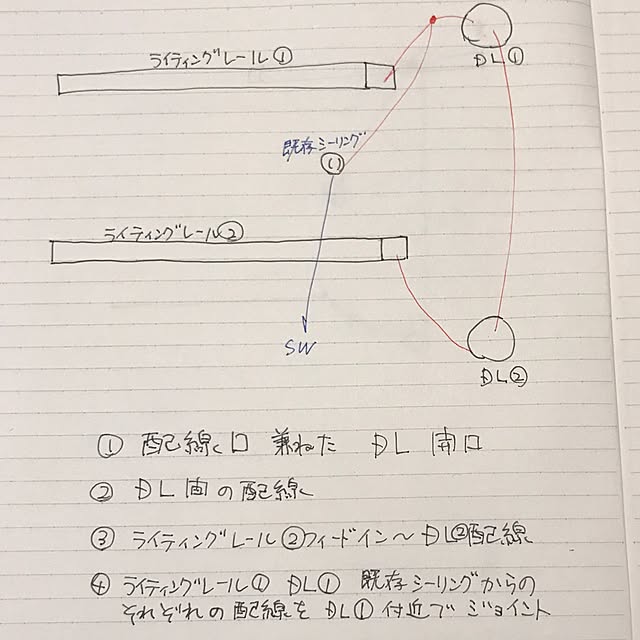 ライティングレール①
DL①
既存シーリング
ライティングレール②
SW
DL②
① 配線口 兼ねた DL 開口
② DL間の配線
③ ライティングレール②フィードイン～DL②配線
④ ライティングレール① DL① 既存シーリングからの
それぞれの配線を DL①付近で ジョイント